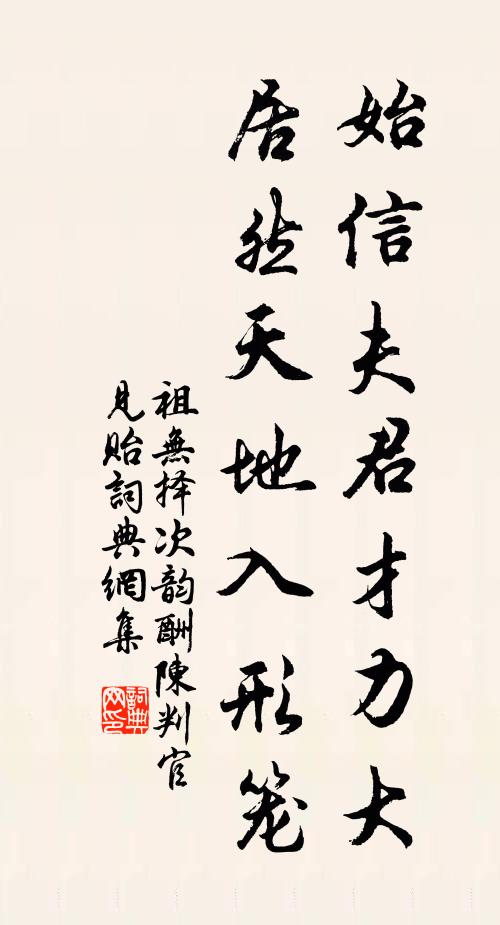 始信夫君才力大
居然天地入形笼
祖無择次韵酬陳判官
見貽詞典網集
詞典网印